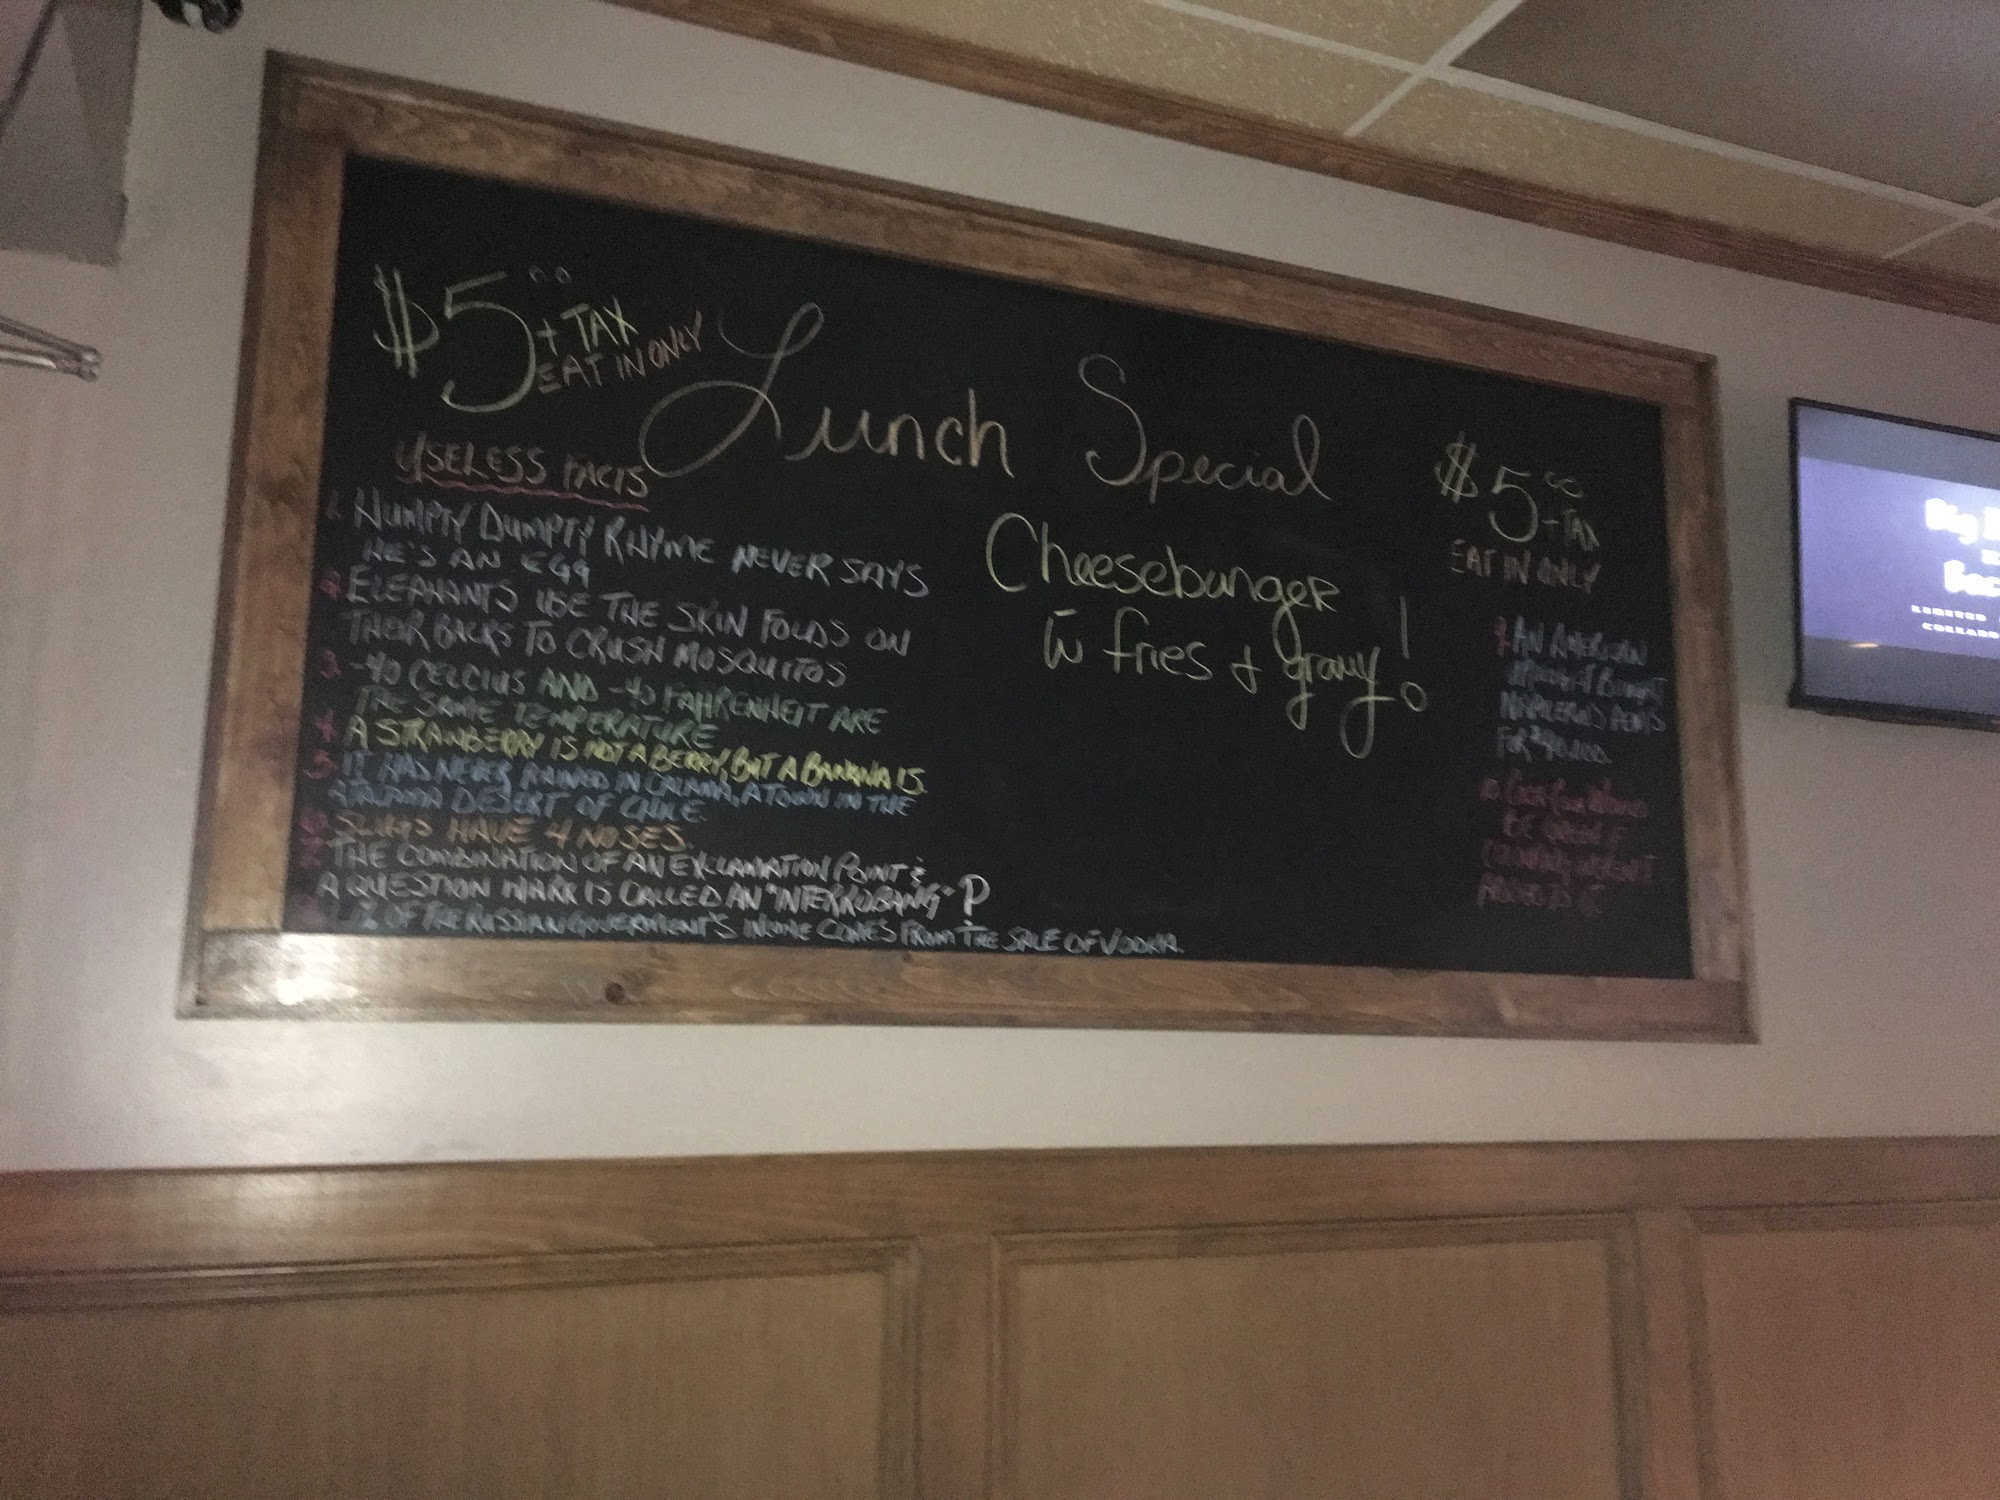 $5.00 + TAX
EAT IN ONLY
Lunch Special
USELESS FACTS
1. HUMPTY DUMPTY RHYME NEVER SAYS
HE'S AN EGG
2. ELEPHANTS USE THE SKIN FOLDS ON
THEIR BACKS TO CRUSH MOSQUITOS
3. -40 CELCIUS AND -40 FAHRENHEIT ARE
THE SAME TEMPERATURE
4. A STRAWBERRY IS NOT A BERRY, BUT A BANANA IS.
5. IT HAS NEVER RAINED IN CALAMA, A TOWN IN THE
ATACAMA DESERT OF CHILE.
6. SLUGS HAVE 4 NOSES.
7. THE COMBINATION OF AN EXCLAMATION POINT &
A QUESTION MARK IS CALLED AN "INTERROBANG"
% OF THE RUSSIAN GOVERMENT'S INCOME COMES FROM THE SALE OF VODKA.
Cheeseburger
w fries + gravy!
$5.00
+ TAX
EAT IN ONLY
9. AN AMERICAN
BOUGHT
NAPOLEON'S PENIS
FOR
10. COCA COLA WOULD
BE GREEN IF
COLORING WEREN'T
ADDED TO IT
Big
LIMITED